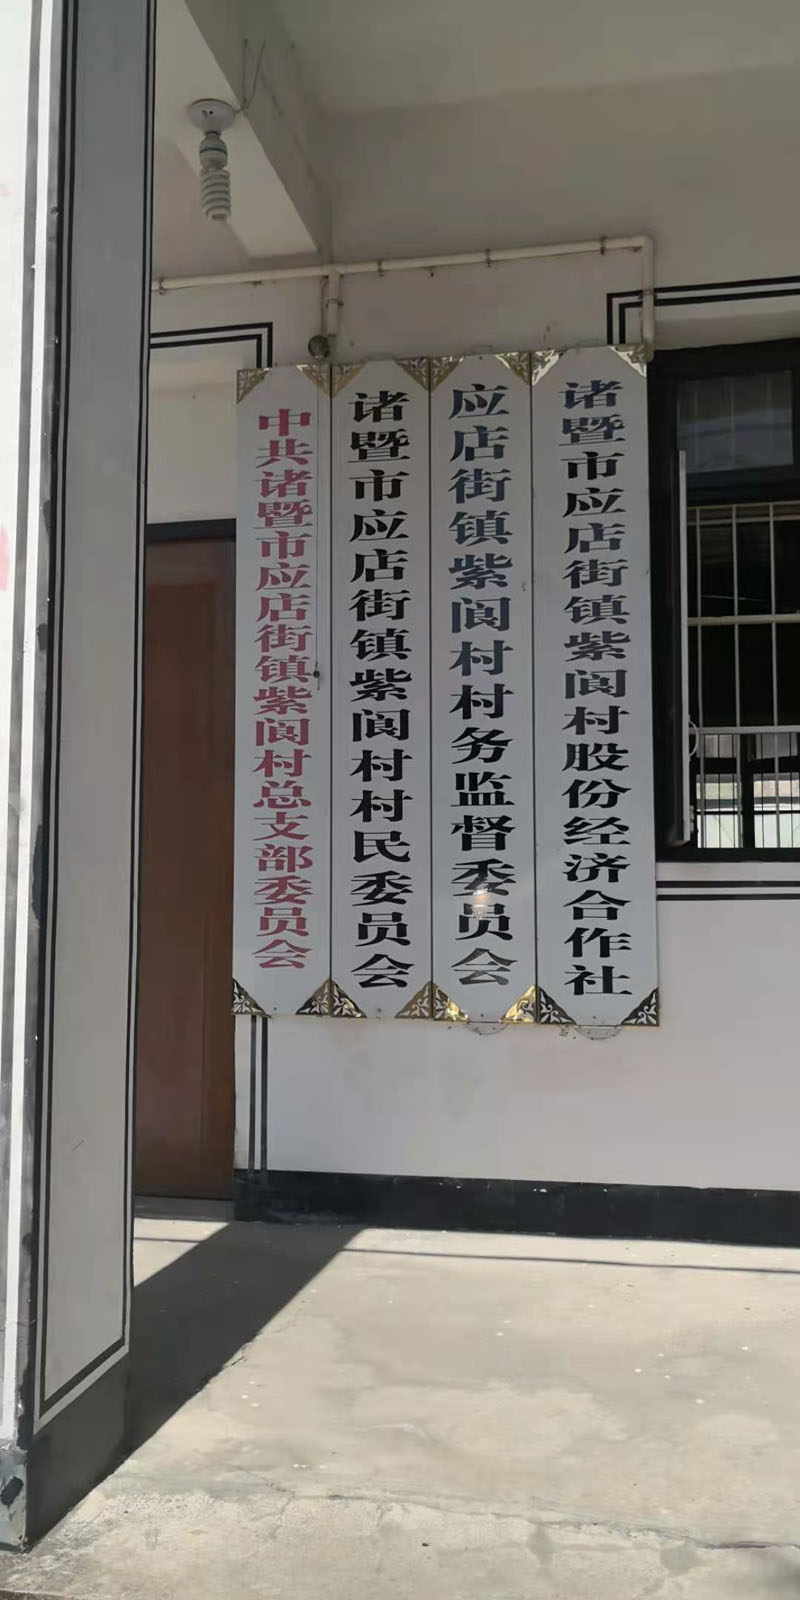 中共诸暨市应店街镇紫阆村总支部委员会
诸暨市应店街镇紫阆村村民委员会
应店街镇紫阆村村务监督委员会
诸暨市应店街镇紫阆村股份经济合作社